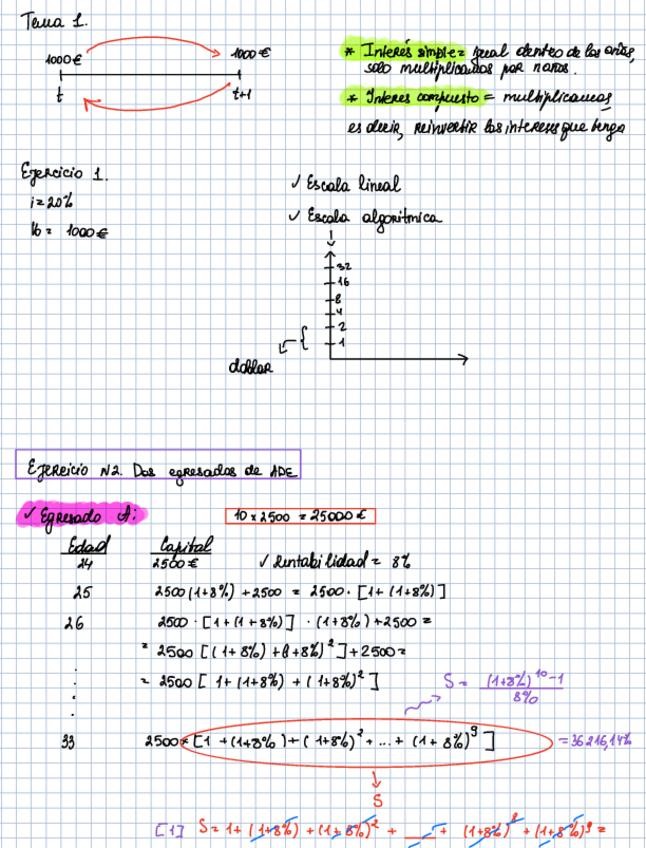 Tema 1.
1000€ 1000€
t t+1
* Interés simple = igual dentro de los años,
solo multiplicamos por n años.
* Interes compuesto = multiplicamos,
es decir, reinvertir los intereses que tengo
Ejercicio 1.
i = 20%
V0 = 1000€
✓ Escala lineal
✓ Escala algoritmica
32
16
8
4
2
1
doblar
Ejercicio N2. Dos egresados de ADE
✓ Egresado A:
10 x 2500 = 25000€
Edad Capital
24 2500€ ✓ Rentabilidad = 8%
25 2500(1+8%) + 2500 = 2500 · [1 + (1+8%)]
26 2500 · [1 + (1+8%)] · (1+8%) + 2500 =
= 2500 [(1+8%) + (1+8%)²] + 2500 =
= 2500 [1 + (1+8%) + (1+8%)²]
S = (1+8%)^10 - 1
8%
33 2500 * [1 + (1+8%) + (1+8%)² + ... + (1+8%)^9] = 36216,14%
S
[1] S = 1 + (1+8%) + (1+8%)² + ___ + (1+8%)^8 + (1+8%)^9 =